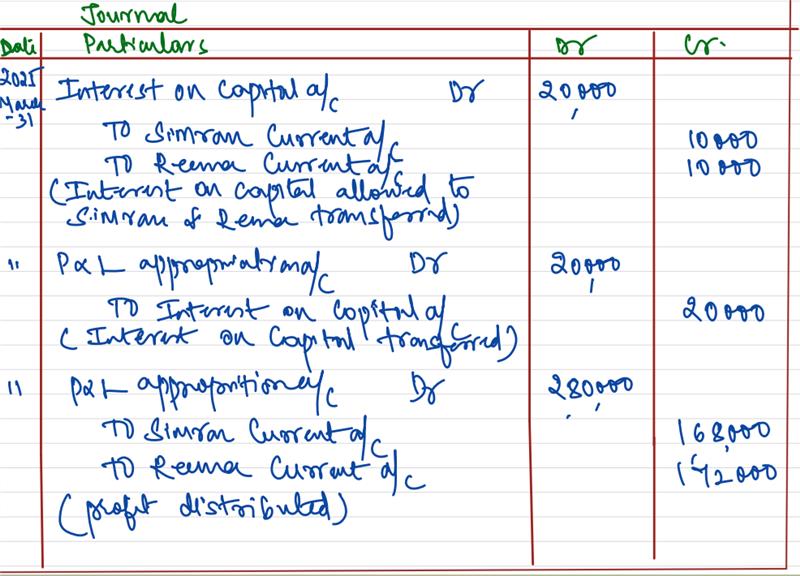 Journal
Date Particulars Dr Cr.
2025 March -31 Interest on Capital a/c Dr 20,000
To Simran Current a/c 10000
To Reema Current a/c 10000
(Interest on capital allowed to
Simran & Rema transferred)
" P&L appropriation a/c Dr 20,000
To Interest on Capital a/c 20000
(Interest on Capital transferred)
" P&L appropriation a/c Dr 280000
To Simran Current a/c 168,000
To Reema Current a/c 172000
(profit distributed)